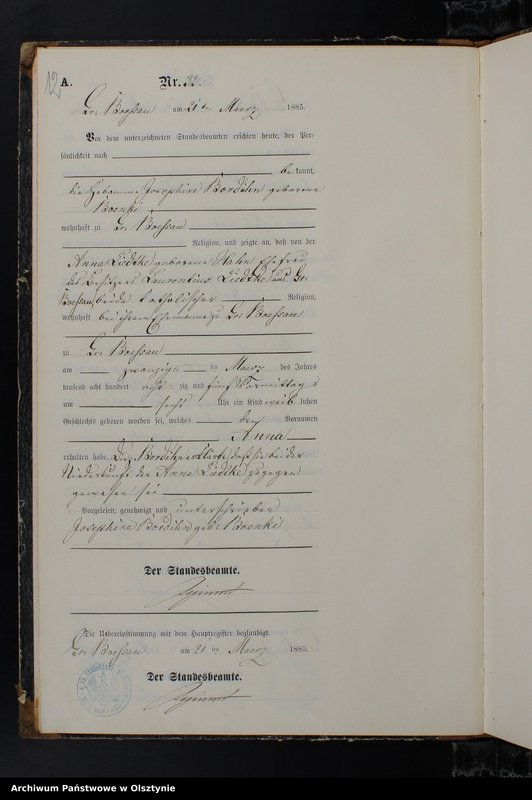 12
A. Nr. 32.
Gr. Boessau am 21 ten Maerz 1885.
Vor dem unterzeichneten Standesbeamten erschien heute, der Per-
sönlichkeit nach
be kannt,
die Hebamme Josephine Bordihn geborene
Boenki
wohnhaft zu Gr. Boessau
Religion, und zeigte an, daß von der
Anna Liedtke geborene Ehefrau
des Besitzers Laurentius Liedtke aus Gr.
Boessau, beide katholischer Religion,
wohnhaft bei ihrem Ehemanne zu Gr. Boessau
zu Gr. Boessau
am zwanzigsten Maerz des Jahres
tausend acht hundert acht zig und fünf Vormittags
um sechs Uhr ein Kind weib lichen
Geschlechts geboren worden sei, welches den Vornamen
Anna
erhalten habe. Die Bordihn erklärte, daß sie bei der
Niederkunft der Anna Liedtke zugegen
gewesen sei
Vorgelesen, genehmigt und unterschrieben
Josephine Bordihn geb. Boenki
Der Standesbeamte.
Die Uebereinstimmung mit dem Hauptregister beglaubigt.
Gr. Boessau am 21 ten Maerz 1885.
Der Standesbeamte.
Archiwum Państwowe w Olsztynie